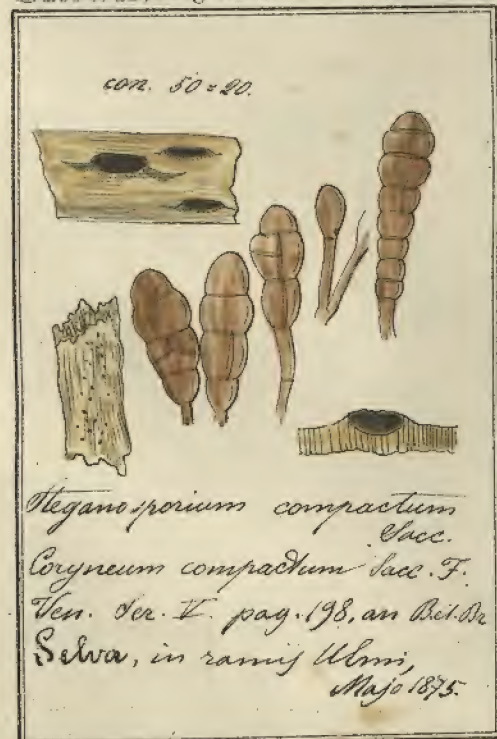 con. 50=20.
Steganosporium compactum
Sacc.
Coryneum compactum Sacc. F.
Ven. Ser. V. pag. 198, an B. et Br
Selva, in ramis Ulmi,
Majo 1875.